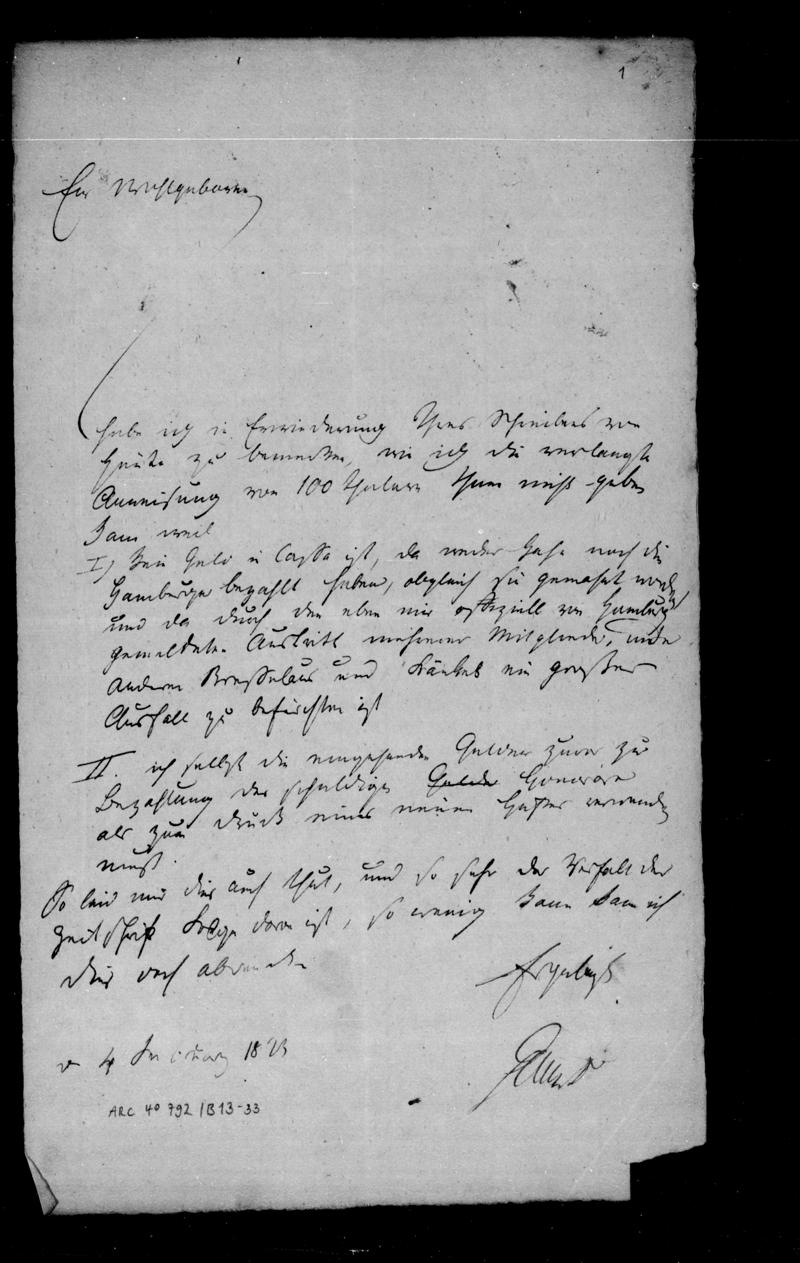 1
Ew Wohlgeboren
habe ich in Erwiederung Ihres Schreibens von
heute zu bemerken, wie ich die verlangte
Anweisung von 100 Thalern Ihnen nicht geben
kann weil
I) kein Geld in Cassa ist, da weder Gans noch die
Hamburger bezahlt haben, obgleich sie gemahnt worden
und da durch den eben mir offiziell von Hamburg
gemeldeten Austritt mehrerer Mitglieder, unter
anderen Bresselaus und ein großer
Ausfall zu befürchten ist
II. ich selbst die eingehenden Gelder zuvor zu
Bezahlung der schuldigen Gelder Honorare
als zum Druck eines neuen Heftes verwenden
muß.
So leid mir dies auch thut, und so sehr der Verfall der
Zeitschrift Folge davon ist, so wenig kann kann ich
dies doch abwenden
Ergebenst
4 1823
ARC 4° 792 / B13-33